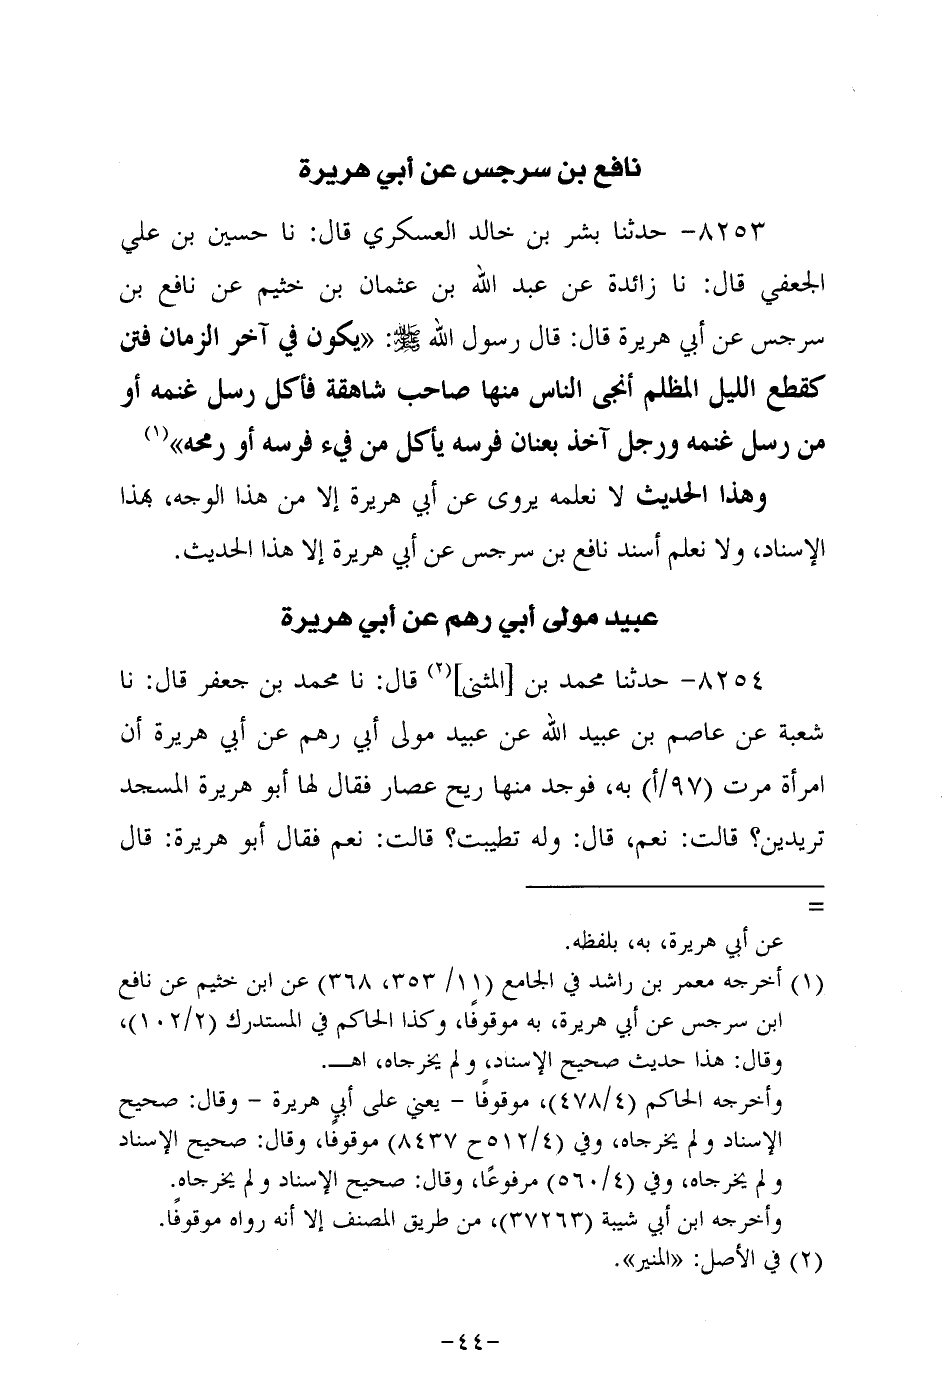 نافع بن سرجس عن أبي هريرة
٨٢٥٣- حدثنا بشر بن خالد العسكري قال: نا حسين بن علي
الجعفي قال: نا زائدة عن عبد الله بن عثمان بن خثيم عن نافع بن
سرجس عن أبي هريرة قال: قال رسول الله ﷺ: «يكون في آخر الزمان فتن
كقطع الليل المظلم أنجى الناس منها صاحب شاهقة فأكل رسل غنمه أو
من رسل غنمه ورجل آخذ بعنان فرسه يأكل من فيء فرسه أو رمحه»(١)
وهذا الحديث لا نعلمه يروى عن أبي هريرة إلا من هذا الوجه، بهذا
الإسناد، ولا نعلم أسند نافع بن سرجس عن أبي هريرة إلا هذا الحديث.
عبيد مولى أبي رهم عن أبي هريرة
٨٢٥٤- حدثنا محمد بن [المثنى](٢) قال: نا محمد بن جعفر قال: نا
شعبة عن عاصم بن عبيد الله عن عبيد مولى أبي رهم عن أبي هريرة أن
امرأة مرت (٩٧/أ) به، فوجد منها ريح عصار فقال لها أبو هريرة المسجد
تريدين؟ قالت: نعم، قال: وله تطيبت؟ قالت: نعم فقال أبو هريرة: قال
=
عن أبي هريرة، به، بلفظه.
(١) أخرجه معمر بن راشد في الجامع (١١/ ٣٥٣، ٣٦٨) عن ابن خثيم عن نافع
ابن سرجس عن أبي هريرة، به موقوفًا، وكذا الحاكم في المستدرك (١٠٢/٢)،
وقال: هذا حديث صحيح الإسناد، ولم يخرجاه، اهـ.
وأخرجه الحاكم (٤٧٨/٤)، موقوفًا - يعني على أبي هريرة - وقال: صحيح
الإسناد ولم يخرجاه، وفي (٥١٢/٤ح ٨٤٣٧) موقوفًا، وقال: صحيح الإسناد
ولم يخرجاه، وفي (٥٦٠/٤) مرفوعًا، وقال: صحيح الإسناد ولم يخرجاه.
وأخرجه ابن أبي شيبة (٣٧٢٦٣)، من طريق المصنف إلا أنه رواه موقوفًا.
(٢) في الأصل: «المنير».
-٤٤-